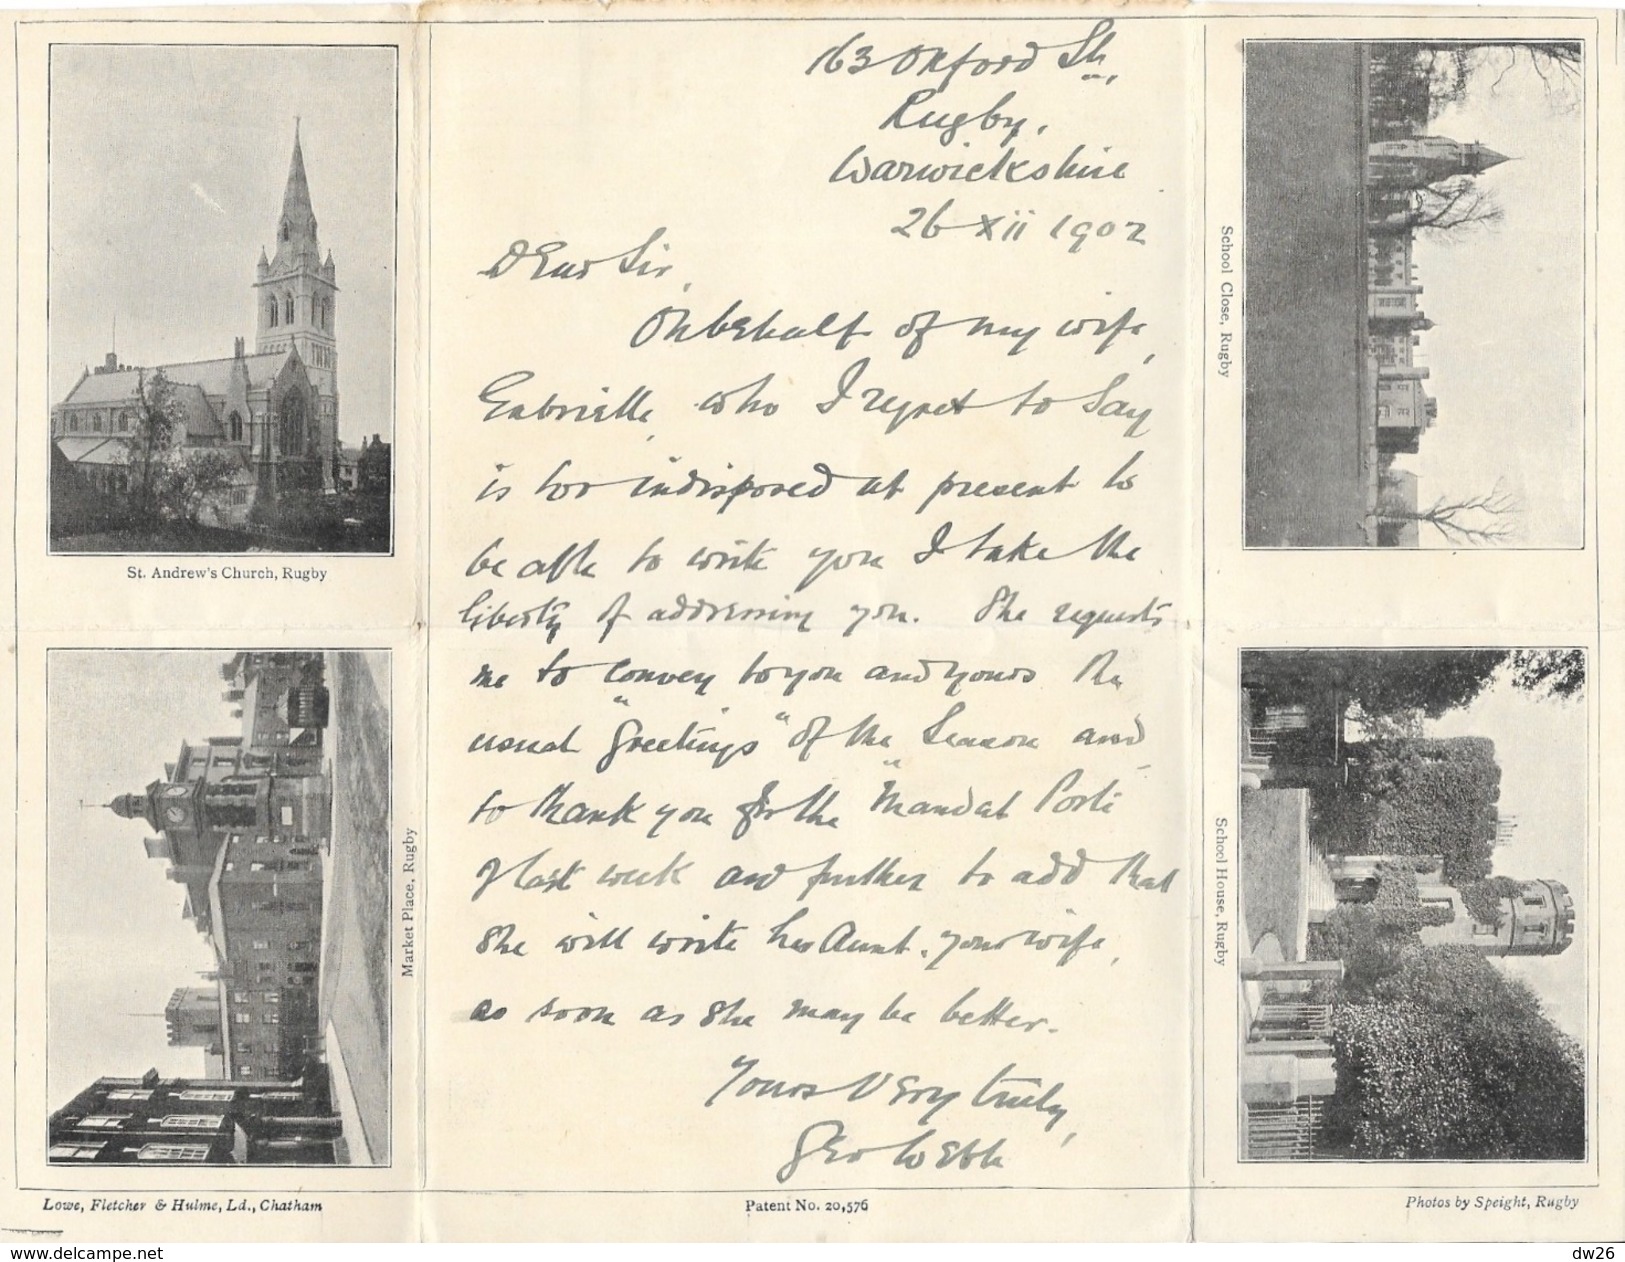 163 Oxford St.,
Rugby,
Warwickshire
26 Xii 1902
Dear Sir,
On behalf of my wife,
Gabrielle, who I regret to say
is too indisposed at present to
be able to write you I take the
liberty of addressing you. She requests
me to convey to you and yours the
usual "Greetings" of the Season and
to thank you for the "Mandat Poste
of last week and further to add that
she will write her Aunt, your wife,
as soon as she may be better.
Yours Very truly,
Geo Webb
St. Andrew's Church, Rugby
Market Place, Rugby
School Close, Rugby
School House, Rugby
Lowe, Fletcher & Hulme, Ld., Chatham
Patent No. 20,576
Photos by Speight, Rugby
www.delcampe.net
dw26